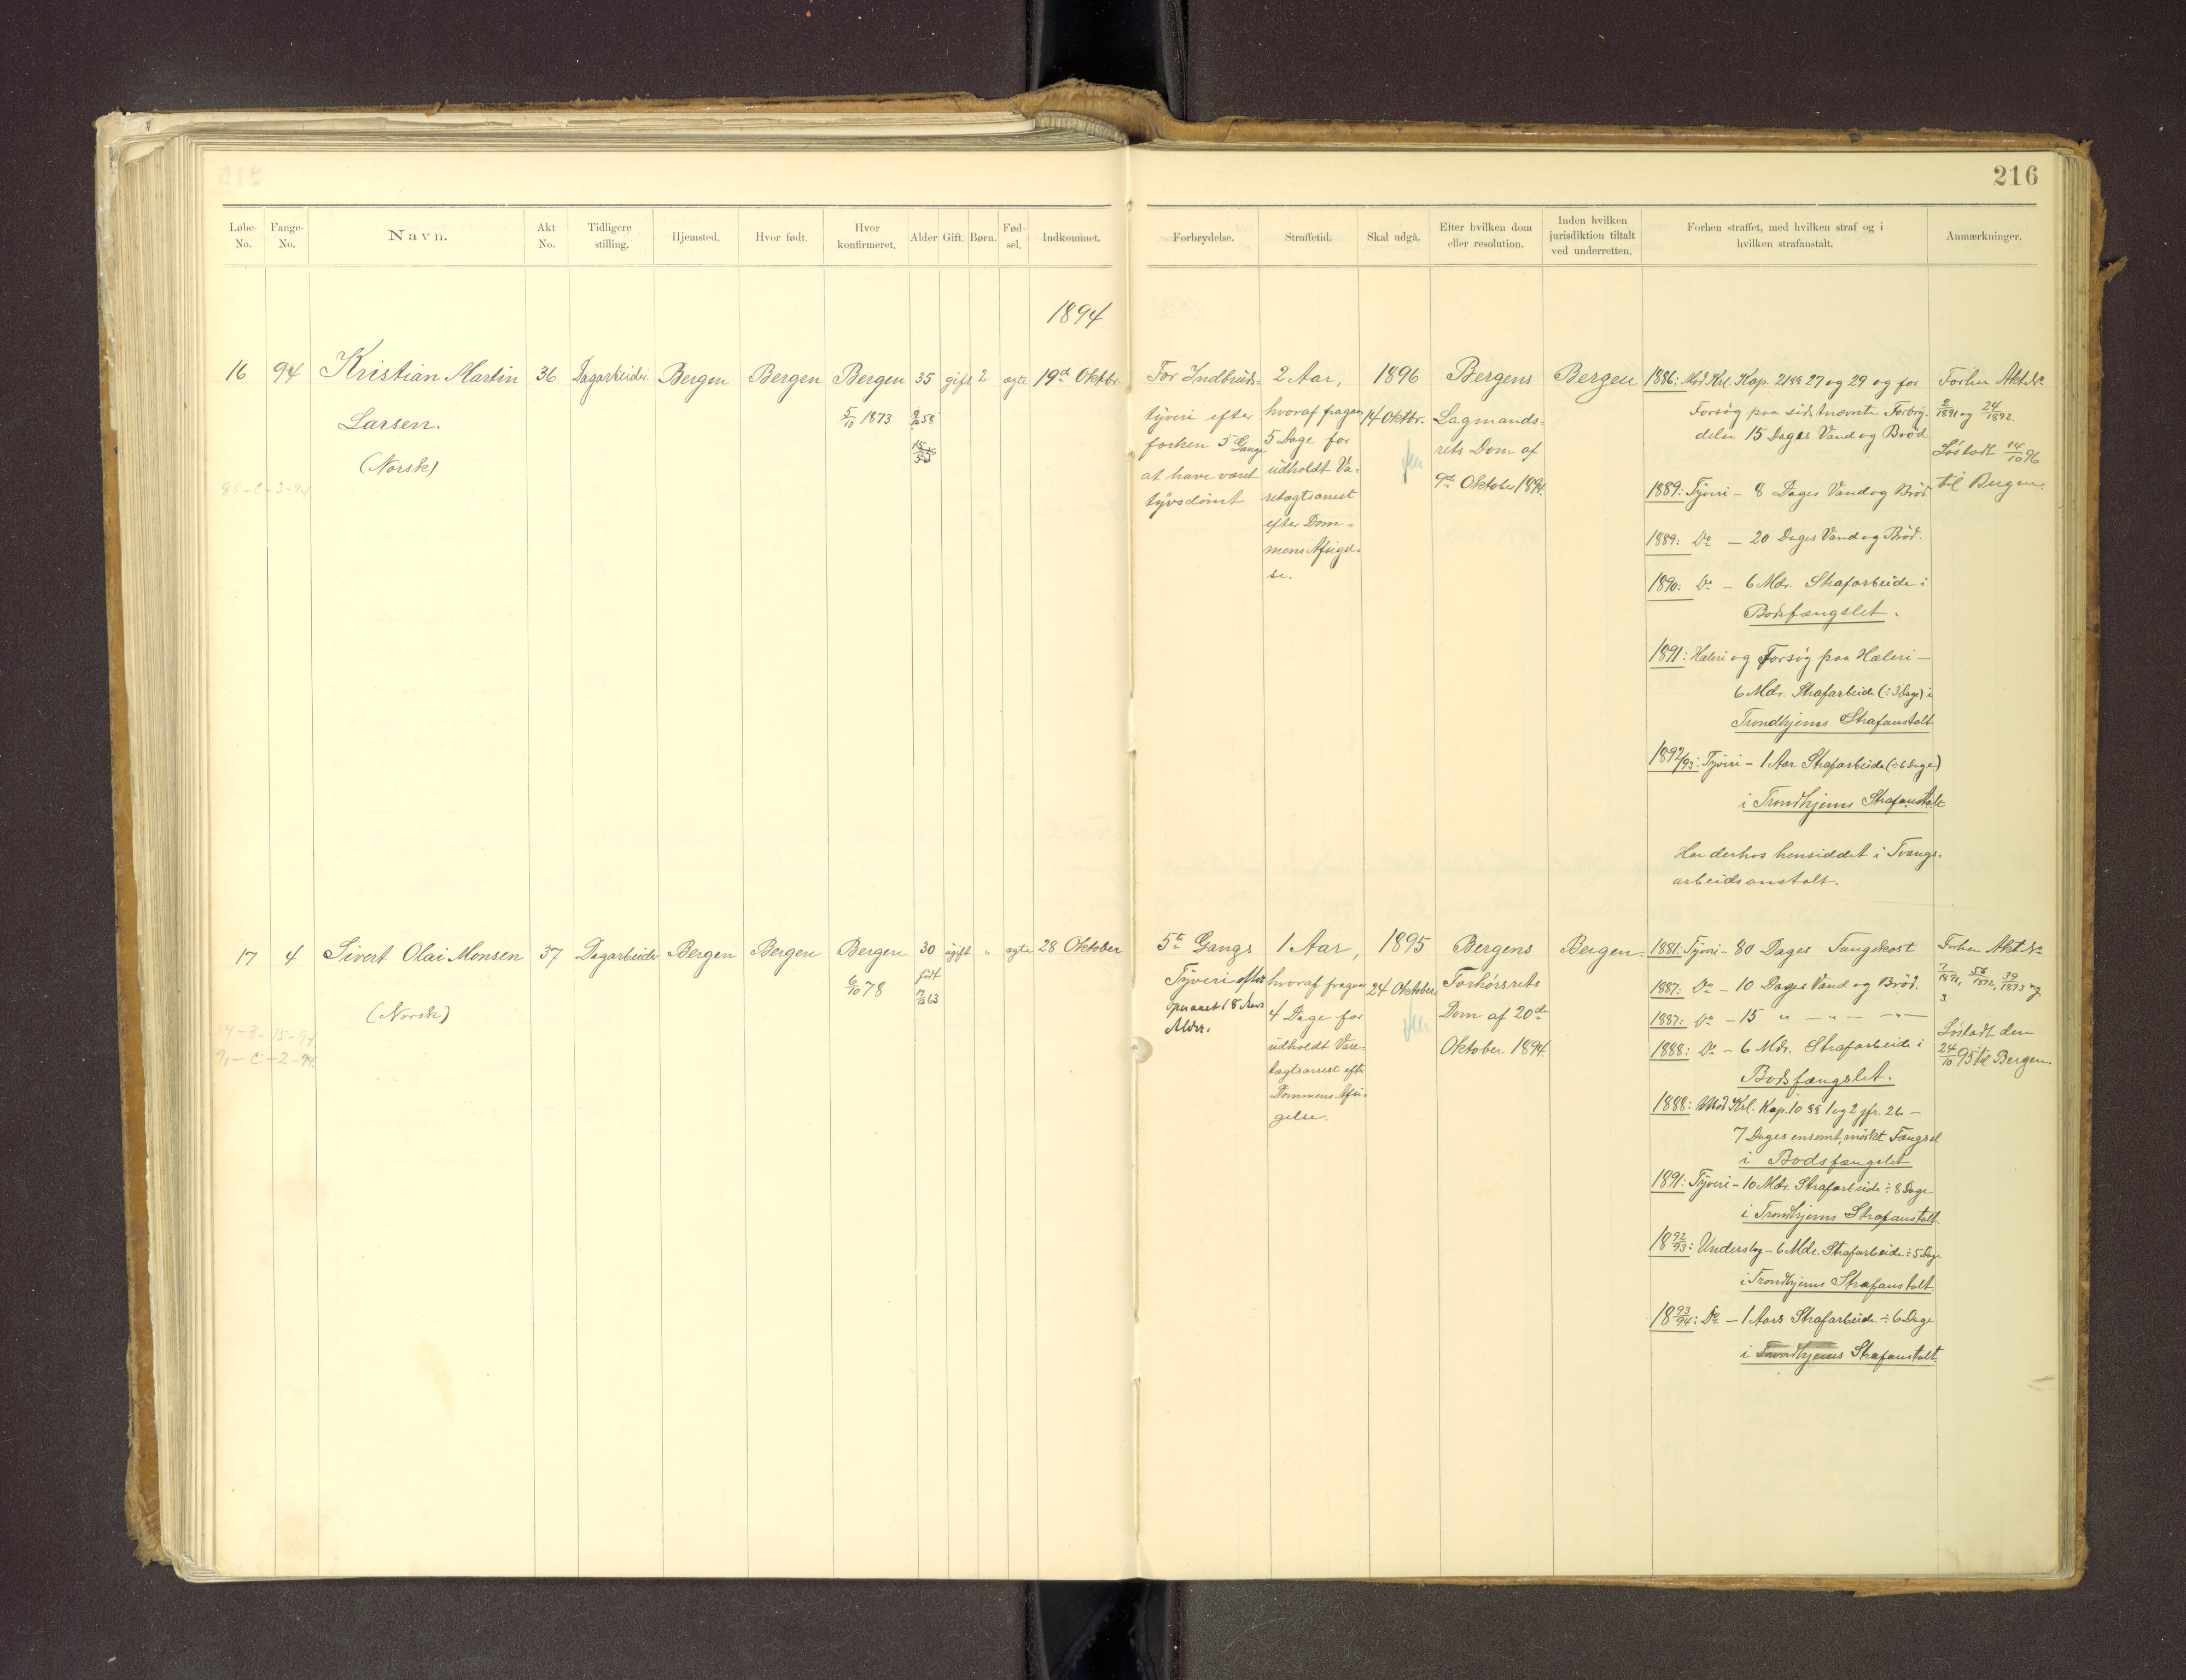 216
Løbe-No. Fange-No. Navn. Akt No. Tidligere stilling. Hjemsted. Hvor født. Hvor konfirmeret. Alder Gift. Børn. Fød-sel. Indkommet.
Forbrydelse. Straffetid. Skal udgå. Efter hvilken dom eller resolution. Inden hvilken jurisdiktion tiltalt ved underretten. Forhen straffet, med hvilken straf og i hvilken strafanstalt. Anmærkninger.
1894
16 94 Kristian Martin 36 Dagarbeider Bergen Bergen Bergen 35 gift 2 ægte 19de Oktbr.
Larsen.
5/10 1873
(Norsk)
85-C-3-94
For Indbruds-
tyveri efter
forhen 5 Gange
at have været
tyvsdømt
2 Aar,
hvoraf fragaar
5 Dage for
udholdt Va-
retægtsarrest
efter Dom-
mens Afsigel-
se.
1896
14 Oktbr.
Bergens
Lagmands-
rets Dom af
9de Oktober 1894.
Bergen
1886: Mod Krl. Kap. 21 §§ 27 og 29 og for
Forsøg paa sidstnævnte Forbry-
delse 15 Dages Vand og Brød
1889: Tyveri - 8 Dages Vand og Brød
1889: Do - 20 Dages Vand og Brød.
1890: Do - 6 Mdr. Strafarbeide i
Bodsfængslet.
1891: Hæleri og Forsøg paa Hæleri -
6 Mdr. Strafarbeide (÷ 3 Dage) i
Trondhjems Strafanstalt
1892/93: Tyveri - 1 Aar Strafarbeide (÷ 6 Dage)
i Trondhjems Strafanstalt
Har derhos hensiddet i Tvangs-
arbeidsanstalt.
Forhen Akt No
2/1891 og 24/1892.
Løsladt 14/10 96
til Bergen.
17 4 Sivert Olai Monsen 37 Dagarbeider Bergen Bergen Bergen 30 ugift " ægte 28 Oktober
6/10 78
født
(Norsk)
91-C-2-94
5te Gangs
Tyveri efter
opnaaet 18 Aars
Alder.
1 Aar,
hvoraf fragaar
4 Dage for
udholdt Vare-
tægtsarrest efter
Dommens Afsi-
gelse.
1895
24 Oktober
Bergens
Forhørsrets
Dom af 20de
Oktober 1894.
Bergen.
1881: Tyveri - 80 Dages Fangekost
1887: Do - 10 Dages Vand og Brød.
1887: Do - 15 " - " - - " -
1888: Do - 6 Mdr. Strafarbeide i
Bodsfængslet.
1888: Mod Krl. Kap. 10 §§ 1 og 2 jfr. 26 -
7 Dages ensomt, mørkt Fængsel
i Bodsfængslet
1891: Tyveri - 10 Mdr. Strafarbeide ÷ 8 Dage
i Trondhjems Strafanstalt.
18 92/93: Underslag - 6 Mdr. Strafarbeide ÷ 5 Dage
i Trondhjems Strafanstalt
18 93/94: Do - 1 Aars Strafarbeide ÷ 6 Dage
i Trondhjems Strafanstalt.
Forhen Akt No
7/1891, 56/1892, 39/1893 og
3
Løsladt den
24/10 95 til Bergen.